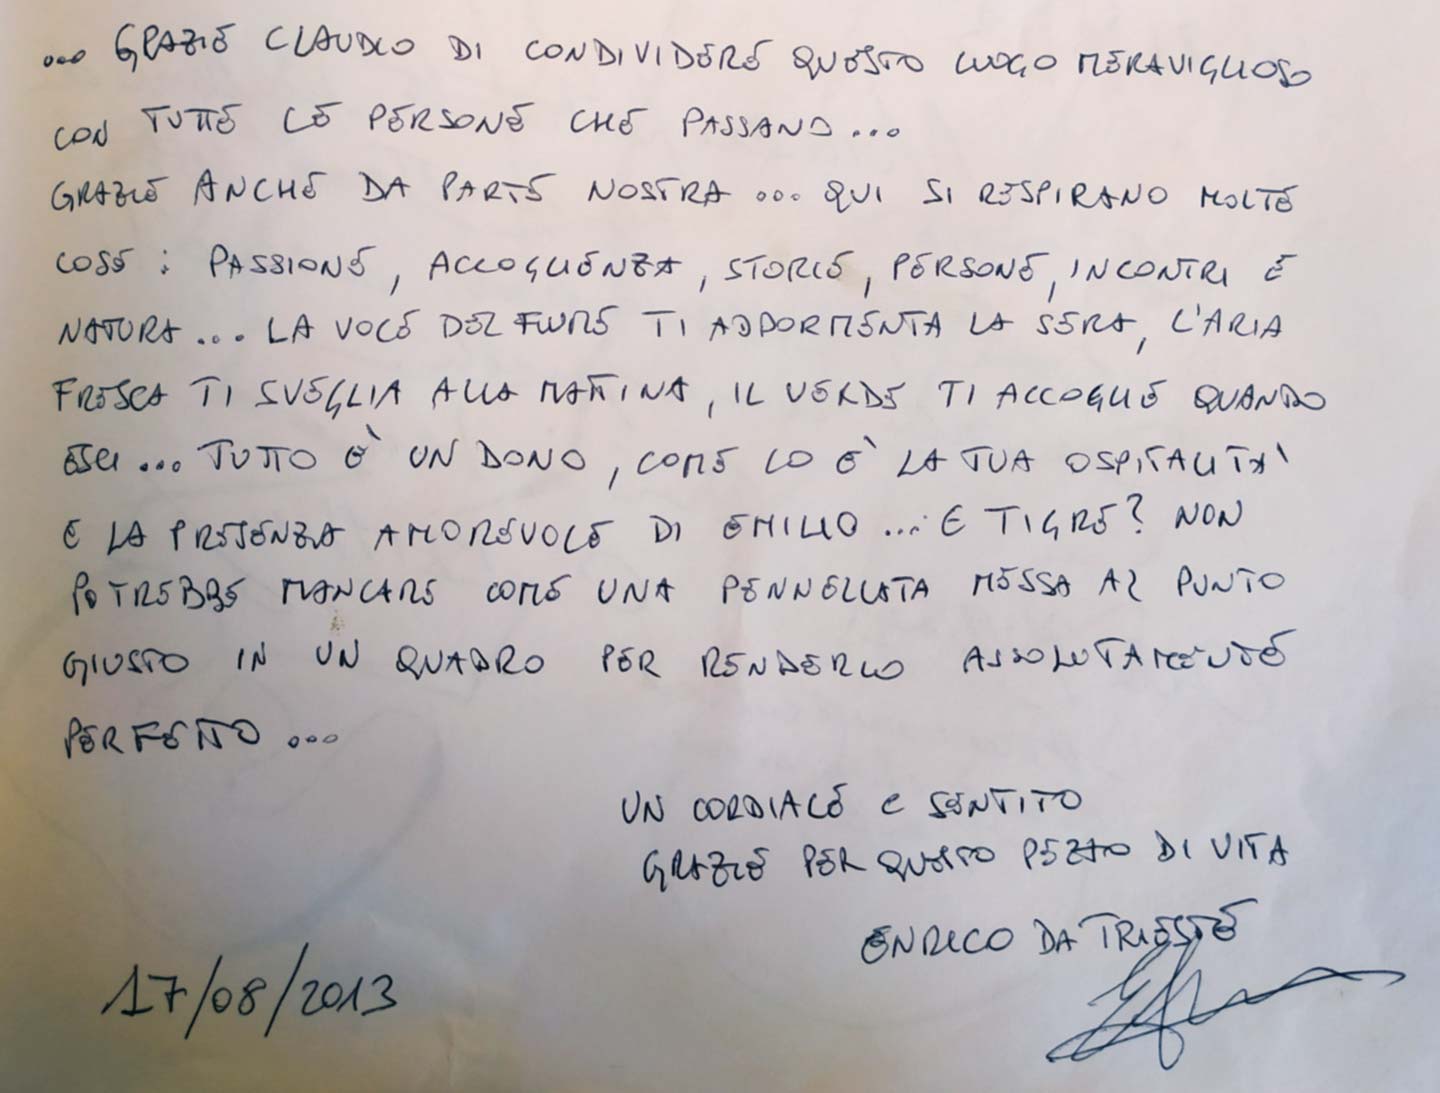 ... GRAZIE CLAUDIO DI CONDIVIDERE QUESTO LUOGO MERAVIGLIOSO
CON TUTTE LE PERSONE CHE PASSANO...
GRAZIE ANCHE DA PARTE NOSTRA ... QUI SI RESPIRANO MOLTE
COSE : PASSIONE, ACCOGLIENZA, STORIE, PERSONE, INCONTRI E
NATURA ... LA VOCE DEL FIUME TI ADDORMENTA LA SERA, L'ARIA
FRESCA TI SVEGLIA ALLA MATTINA, IL VERDE TI ACCOGLIE QUANDO
ESCI ... TUTTO È UN DONO, COME LO È LA TUA OSPITALITÀ
E LA PRESENZA AMOREVOLE DI EMILIO ... E TIGRE? NON
POTREBBE MANCARE COME UNA PENNELLATA MESSA AL PUNTO
GIUSTO IN UN QUADRO PER RENDERLO ASSOLUTAMENTE
PERFETTO ...
UN CORDIALE E SENTITO
GRAZIE PER QUESTO PEZZO DI VITA
ENRICO DA TRIESTE
17/08/2013